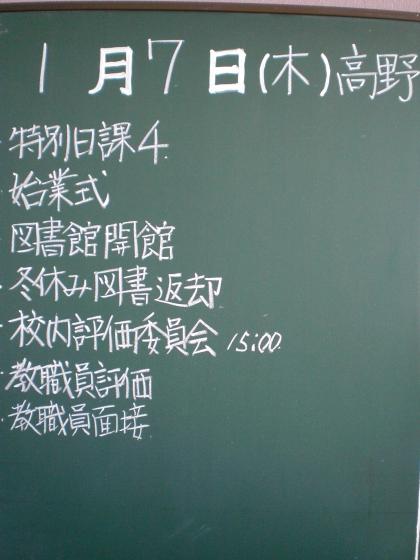 1月7日(木)高野
・特別日課4
・始業式
・図書館開館
・冬休み図書返却
・校内評価委員会 15:00
・教職員評価
・教職員面接